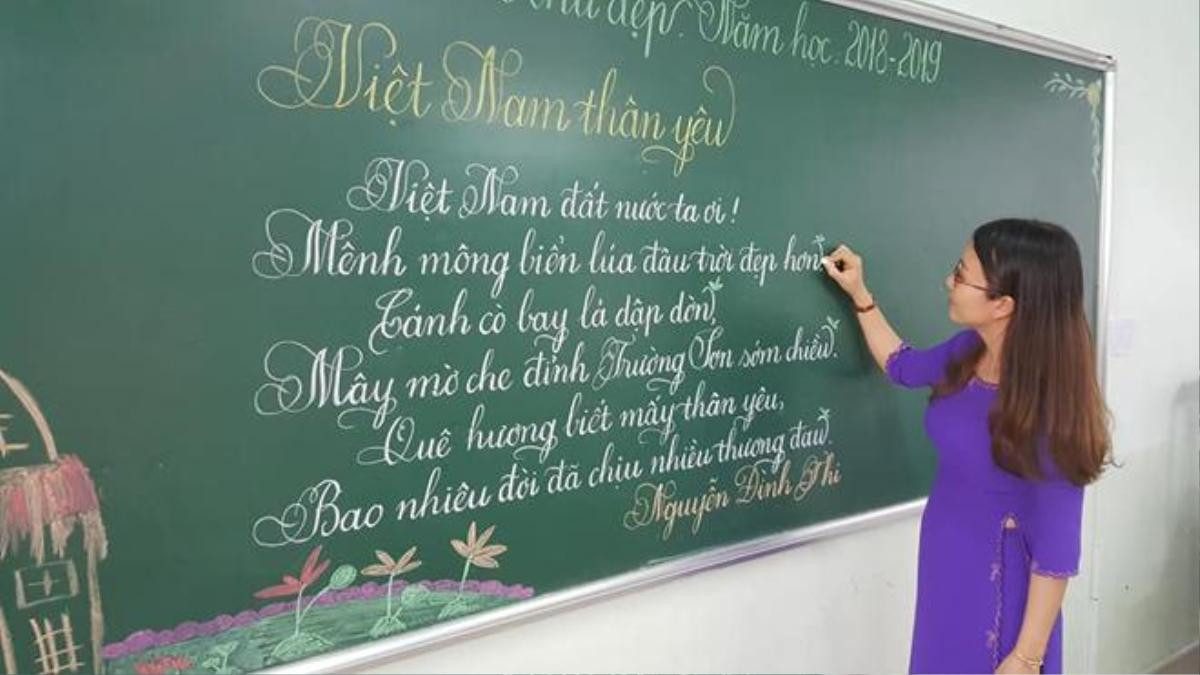 đẹp. Năm học: 2018-2019
Việt Nam thân yêu
Việt Nam đất nước ta ơi!
Mênh mông biển lúa đâu trời đẹp hơn,
Cánh cò bay lả dập dờn,
Mây mờ che đỉnh Trường Sơn sớm chiều.
Quê hương biết mấy thân yêu,
Bao nhiêu đời đã chịu nhiều thương đau.
Nguyễn Đình Thi